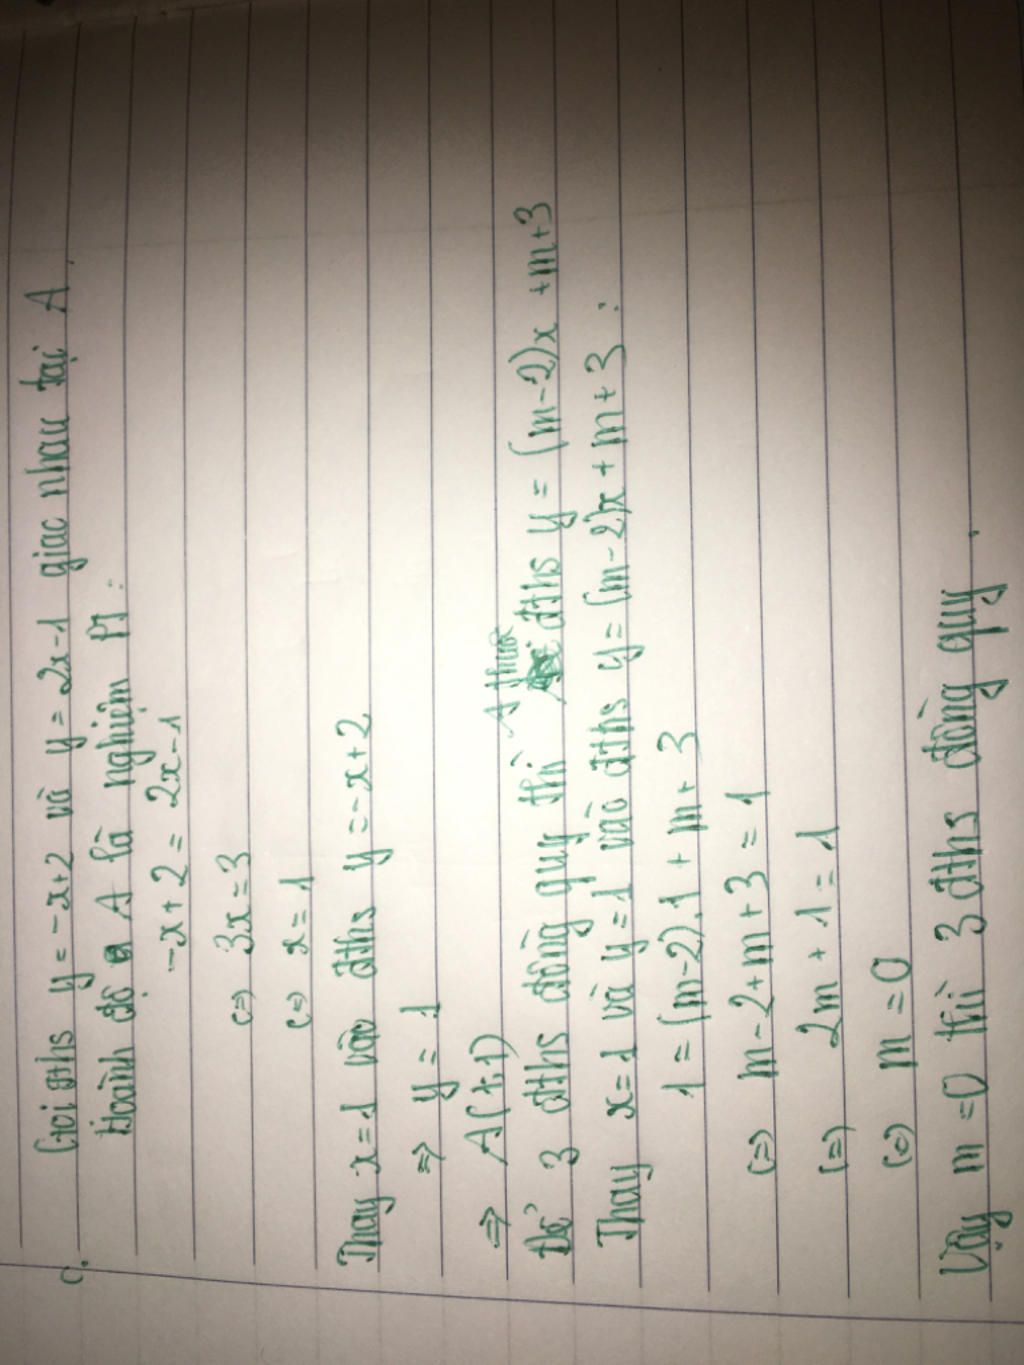 c. Gọi đths y = -x+2 và y = 2x-1 giac nhau tại A.
Hoành độ A là nghiệm PT:
-x+2 = 2x-1
(=) 3x = 3
(=) x = 1
Thay x=1 vào đths y = -x+2
=> y = 1
=> A(1,1)
A thuộc
Để 3 đths đồng quy thì đths y = (m-2)x +m+3
Thay x=1 và y=1 vào đths y = (m-2)x + m+3:
1 = (m-2).1 + m+3
(=) m-2+m+3 = 1
(=) 2m + 1 = 1
(=) m = 0
Vậy m=0 thì 3 đths đồng quy.